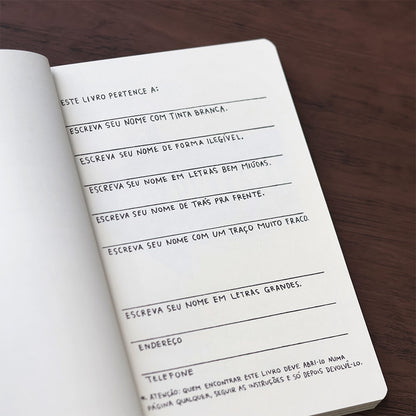 ESTE LIVRO PERTENCE A:
ESCREVA SEU NOME COM TINTA BRANCA.
ESCREVA SEU NOME DE FORMA ILEGÍVEL.
ESCREVA SEU NOME EM LETRAS BEM MIÚDAS.
ESCREVA SEU NOME DE TRÁS PRA FRENTE.
ESCREVA SEU NOME COM UM TRAÇO MUITO FRACO.
ESCREVA SEU NOME EM LETRAS GRANDES.
ENDEREÇO
TELEFONE
* ATENÇÃO: QUEM ENCONTRAR ESTE LIVRO DEVE ABRI-LO NUMA
PÁGINA QUALQUER, SEGUIR AS INSTRUÇÕES E SÓ DEPOIS DEVOLVÊ-LO.